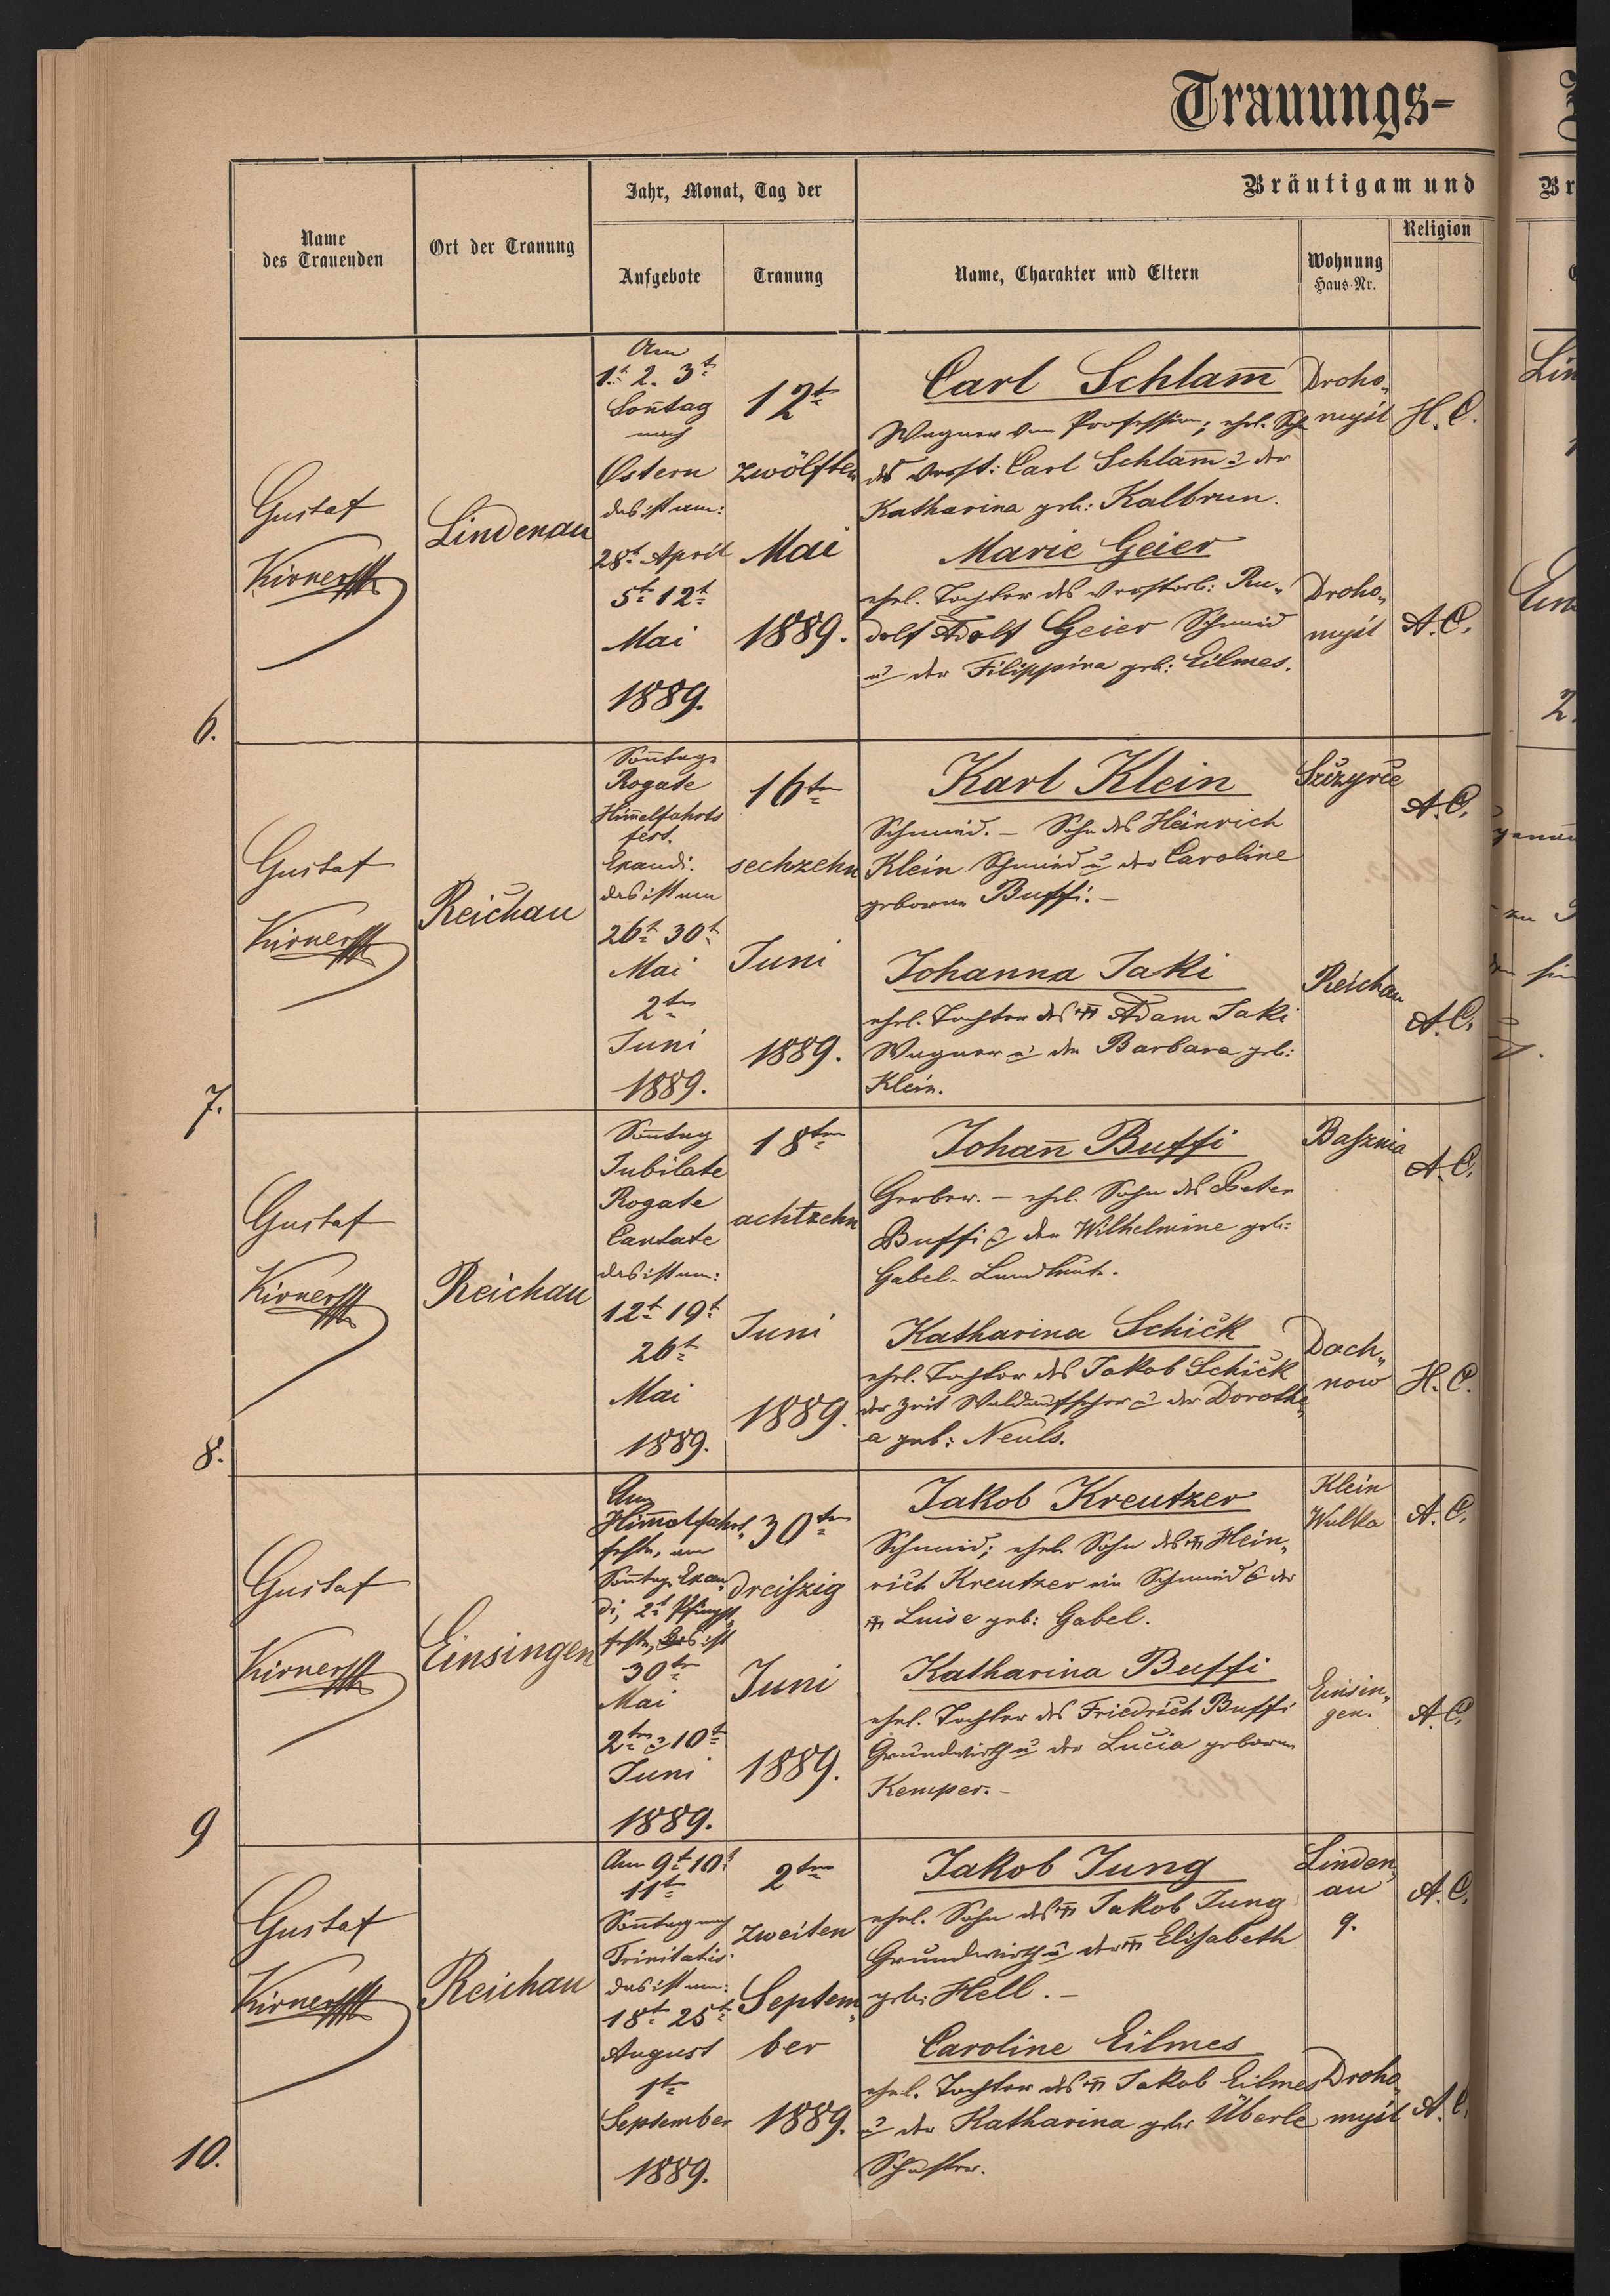 Trauungs-
Name
des Trauenden
Ort der Trauung
Jahr, Monat, Tag der
Aufgebote
Trauung
Bräutigam und
Name, Charakter und Eltern
Wohnung
Haus-Nr.
Religion
6.
Gustaf
Kirner
Lindenau
Am
1t. 2. 3t
Son̄tag
nach
Ostern
das ist am:
28t April
5t 12t
Mai
1889.
12t
zwölften
Mai
1889.
Carl Schlam̄
Wagner von Profession; ehel. Sohn
des verst: Carl Schlam̄ u der
Katharina geb: Kalbrun.
Droho„
myśl
H. C.
Marie Geier
ehel. Tochter des verstorb: Ru„
dolf Adolf Geier Schmid
u der Filippina geb: Eilmes.
Droho„
myśl
A. C.
7.
Gustaf
Kirner
Reichau
Son̄tags
Rogate
Him̄elfahrts
fest.
Exaudi.
das ist am
26t 30t
Mai
2ten
Juni
1889.
16ten
sechzehn
Juni
1889.
Karl Klein
Schmid. – Sohn des Heinrich
Klein Schmid u der Caroline
geborne Buffi. –
A. C.
Johanna Jaki
ehel. Tochter des Adam Jaki
Wagner u der Barbara geb:
Klein.
Reichau
A. C.
8.
Gustaf
Kirner
Reichau
Son̄tag
Jubilate
Rogate
Cantate
das ist am:
12t 19t
26t
Mai
1889.
18ten
achtzehn
Juni
1889.
Johan̄ Buffi
Gerber. – ehel. Sohn des Peter
Buffi & der Wilhelmine geb:
Gabel. Landleute.
Basznia
A. C.
Katharina Schick
ehel. Tochter des Jakob Schick
der Zeit Waldaufseher u der Dorothe„
a geb: Neuls.
Dach„
now
H. C.
9
Gustaf
Kirner
Einsingen
Am
Him̄elfahrts„
feste, am
Son̄tag Exau„
di, 2t Pfingst„
feste, das ist
30ten
Mai
2ten & 10t
Juni
1889.
30ten
dreiszig
Juni
1889.
Jakob Kreutzer
Schmid; ehel. Sohn des Hein„
rich Kreutzer ein Schmid & der
Luise geb: Gabel.
Klein
Wulka
A. C.
Katharina Buffi
ehel. Tochter des Friedrich Buffi
Grundwirth u der Lucia geborne
Kemper. –
Einsin„
gen.
A. C.
10.
Gustaf
Kirner
Reichau
Am 9t 10t
11t
Son̄tag nach
Trinitatis.
das ist am:
18t 25t
August
1te
September
1889.
2ten
zweiten
Septem„
ber
1889.
Jakob Jung
ehel. Sohn des Jakob Jung
Grundwirth u der Elisabeth
geb: Hell. –
Linden„
au
9.
A. C.
Caroline Eilmes
ehel. Tochter des Jakob Eilmes
u der Katharina geb: Überle
Schuster.
Droho„
myśl
A. C.